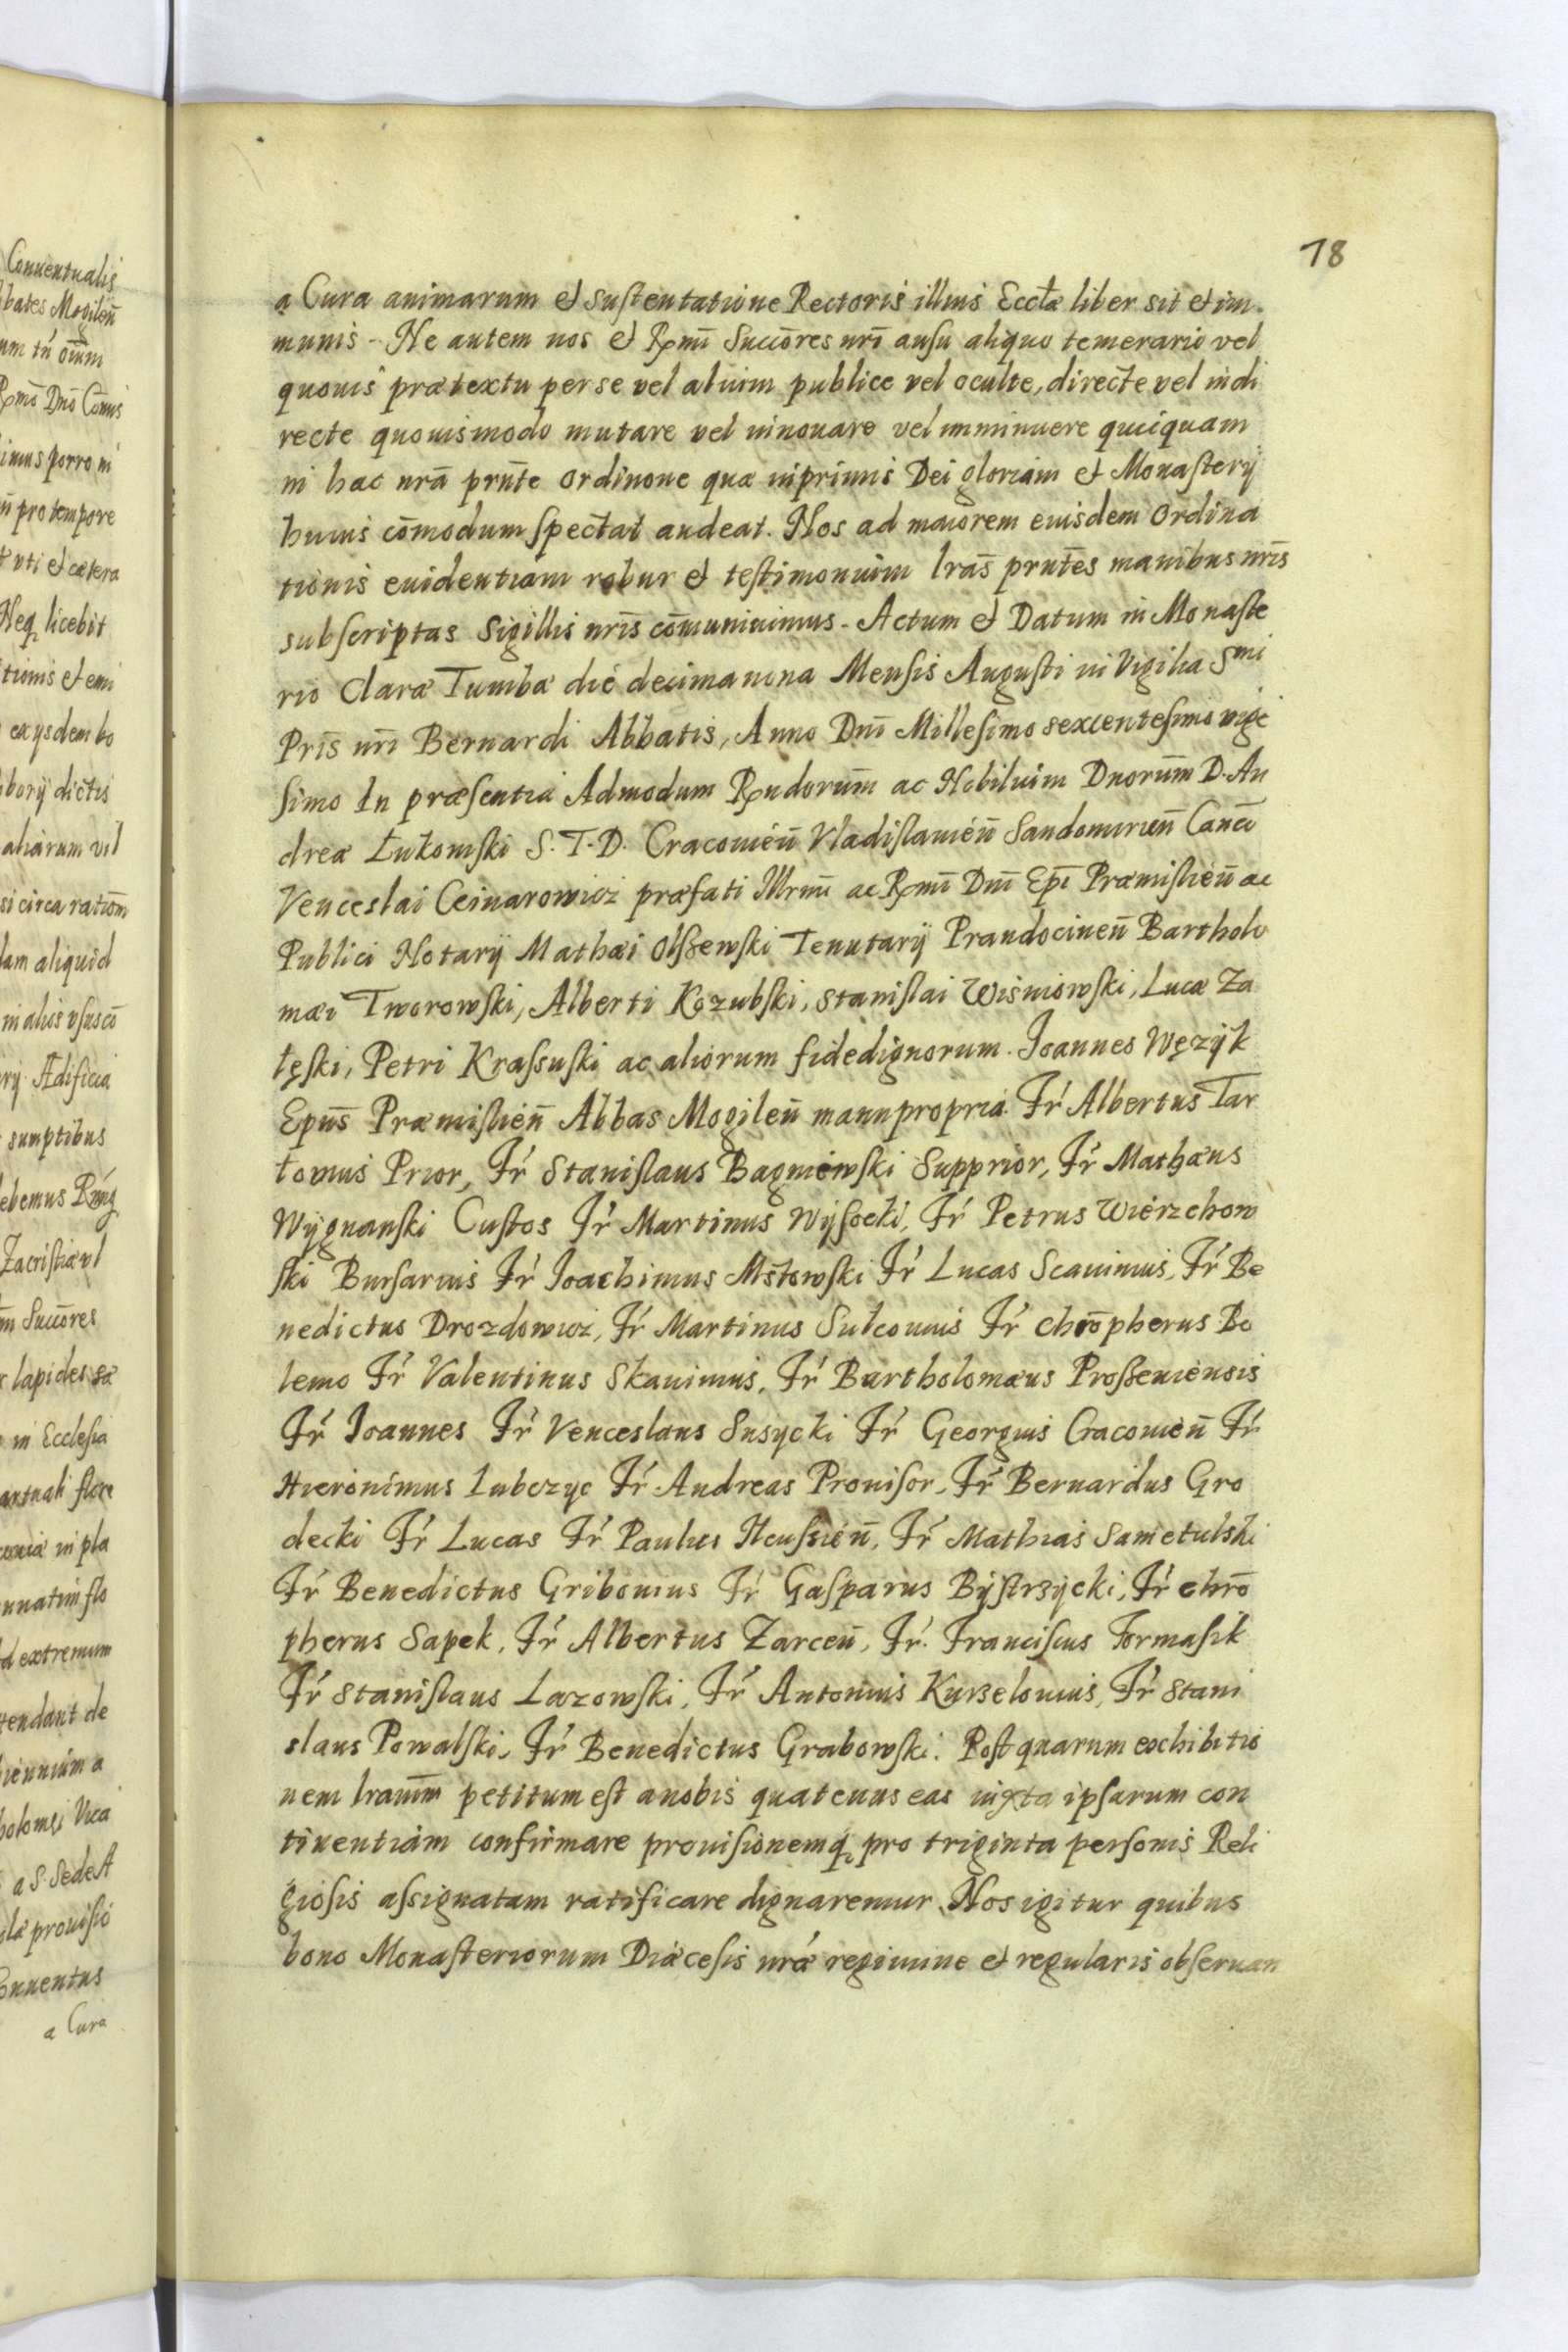 Conuentualis
bates Mogileñ
um tń oīum
Rxmō Dnō Cōmis
imus porro in
n̄ pro tempore
t vti et cætera
Neq licebit
tionis et emi
ex ysdem bo
borÿ dictis
aliarum vel
si circa ratiōm
dam aliquid
in alios vsus cō
rÿ Ædificia
sumptibus
debemus
Zacristiæ vl
Succōres
lapides
in Ecclesia
in pla
nnatim flo
d extremum
tendant de
iennium a
olomęi Vica
a S. Sede A
prouisio
Conuentus
a Cura
18
a Cura animarum et sustentatione Rectoris illius Eccłæ liber sit et im.
munis - Ne autem nos et Rxmī Succōres nrī ausu aliquo temerario vel
quouis prætextu per se vel alium publice vel oculte, directe vel indi
recte quouismodo mutare vel innouare vel imminuere quicquam
in hac nrā prn̄te ordinone quæ inprimis Dei gloriam et Monasterÿ
huius cōmodum spectat audeat. Nos ad maiorem eiusdem Ordina
tionis euidentiam robur et testimonium lrās prn̄tes manibus nrīs
subscriptas Sigillis nrīs cōmuniuimus - Actum et Datum in Monaste
rio Claræ Tumbæ die decima nona Mensis Augusti in Vigilia Smi
Prīs nrī Bernardi Abbatis, Anno Dnī Millesimo sexcentesimo vige
simo In præsentia Admodum Rxndorum̄ ac Nobilium Dnorum̄ D. An
dreæ Łukomski S. T. D. Cracouień Vladislauień Sandomirień Canci
Venceslai Ceinarowicz præfati Illrmī ac Rxmī Dnī Epī Præmislień ac
Publici Notarÿ Mathæi Olßewski Tenutarÿ Prandocineń Bartholo
mæi Tworowski, Alberti Kozubski, Stanislai Wiśniowski, Lucæ Za
łęski, Petri Krassuski ac aliorum fidedignorum. Ioannes Wężÿk
Epūs Præmislień Abbas Mogileń manu propria. Fr Albertus Tar
tomus Prior, Fr Stanislaus Bagniewski Supprior, Fr Mathæus
Wÿgnanski Custos Fr Martinus Wÿsocki, Fr Petrus Wierzchow
ski Bursarius Fr Ioachimus Mstowski Fr Lucas Scauinius, Fr Be
nedictus Drozdowicz, Fr Martinus Sulcouius Fr Chrōpherus Bo
lemo Fr Valentinus Skauinius, Fr Bartholomæus Proßeuiensis
Fr Ioannes Fr Venceslaus Susycki Fr Georgius Cracouień Fr
Hieronimus Lubczyc Fr Andreas Prouisor, Fr Bernardus Gro
decki Fr Lucas Fr Paulus Fr Mathias Sametulski
Fr Benedictus Gribouius Fr Gasparus Bÿstrzÿcki, Fr Chrō
pherus Sapek, Fr Albertus Zarceń, Fr. Franciscus Formasik
Fr Stanislaus Lazowski, Fr Antonius Kurzelouius, Fr Stani
slaus Powalski, Fr Benedictus Grabowski. Post quarum exhibitio
nem lrarum̄ petitum est a nobis quatenus eas iuxta ipsarum con
tinentiam confirmare prouisionemq pro triginta personis Reli
giosis assignatam ratificare dignaremur. Nos igitur quibus
bono Monasteriorum Diæcesis nræ regimine et regularis obseruan